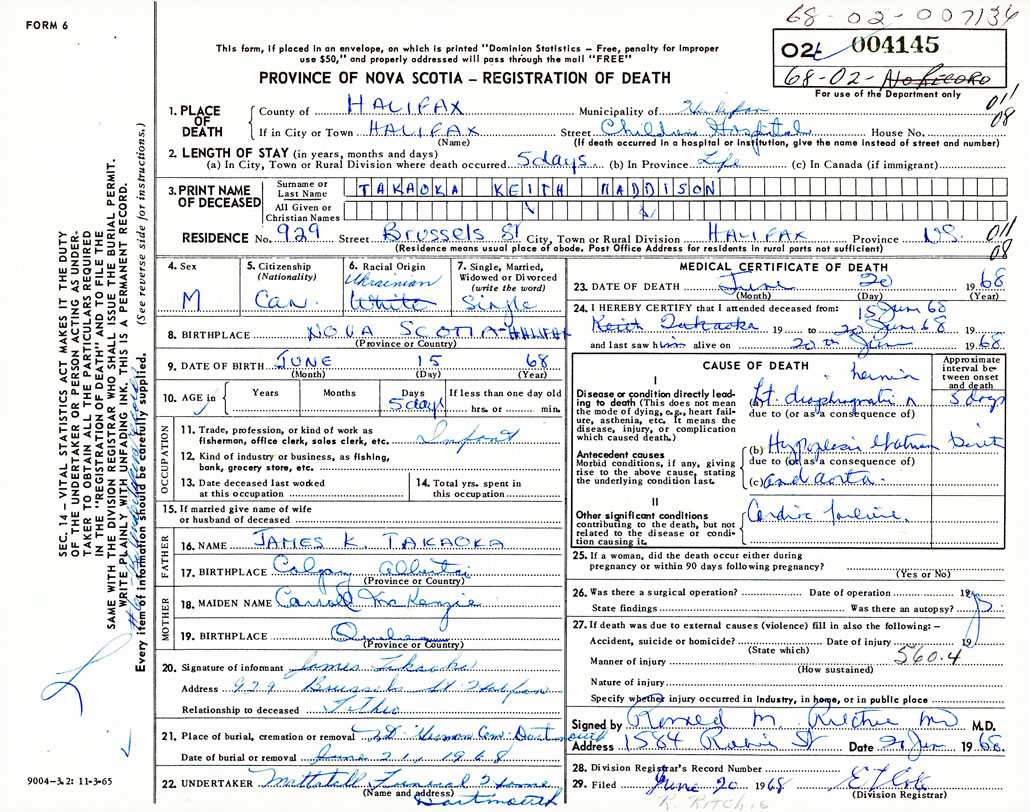 FORM 6
68-02-007134
This form, if placed in an envelope, on which is printed "Dominion Statistics – Free, penalty for improper
use $50," and properly addressed will pass through the mail "FREE"
PROVINCE OF NOVA SCOTIA – REGISTRATION OF DEATH
004145
68-02- No RECORD
For use of the Department only
011
08
1. PLACE OF DEATH
County of HALIFAX Municipality of
If in City or Town HALIFAX Street Childrens Hospital House No.
(Name) (If death occurred in a hospital or institution, give the name instead of street and number)
2. LENGTH OF STAY (in years, months and days)
(a) In City, Town or Rural Division where death occurred 5 days (b) In Province Life (c) In Canada (if immigrant)
3. PRINT NAME OF DECEASED
Surname or Last Name TAKAOKA KEITH MADDISON
All Given or Christian Names
RESIDENCE No. 929 Street Brussels St City, Town or Rural Division HALIFAX Province N.S.
(Residence means usual place of abode. Post Office Address for residents in rural parts not sufficient)
011
08
4. Sex M
5. Citizenship (Nationality) Can.
6. Racial Origin Ukrainian White
7. Single, Married, Widowed or Divorced (write the word) Single
8. BIRTHPLACE NOVA SCOTIA-HALIFAX
(Province or Country)
9. DATE OF BIRTH JUNE 15 68
(Month) (Day) (Year)
10. AGE in Years Months Days 5 days If less than one day old hrs. or min.
OCCUPATION
11. Trade, profession, or kind of work as fisherman, office clerk, sales clerk, etc. Infant
12. Kind of industry or business, as fishing, bank, grocery store, etc.
13. Date deceased last worked at this occupation
14. Total yrs. spent in this occupation
15. If married give name of wife or husband of deceased
FATHER
16. NAME JAMES K. TAKAOKA
17. BIRTHPLACE Calgary Alberta
(Province or Country)
MOTHER
18. MAIDEN NAME Carroll McKenzie
19. BIRTHPLACE
(Province or Country)
20. Signature of informant James Takaoka
Address 929 Brussels St Halifax
Relationship to deceased Father
21. Place of burial, cremation or removal Mt. Hermon Cem. Dartmouth
Date of burial or removal June 21, 1968
22. UNDERTAKER Mattatall Funeral Home
(Name and address) Dartmouth
MEDICAL CERTIFICATE OF DEATH
23. DATE OF DEATH June 20 1968
(Month) (Day) (Year)
24. I HEREBY CERTIFY that I attended deceased from: 15 Jun 68
Keith Takaoka 19 to 20 Jun 68 19
and last saw him alive on 20th Jun 1968.
CAUSE OF DEATH
Approximate interval between onset and death
I
Disease or condition directly leading to death (This does not mean the mode of dying, e.g., heart failure, asthenia, etc. It means the disease, injury, or complication which caused death.)
(a) Lt. diaphragmatic hernia 5 days
due to (or as a consequence of)
Antecedent causes
Morbid conditions, if any, giving rise to the above cause, stating the underlying condition last.
(b) Hypoplasia
due to (or as a consequence of)
(c) and aorta.
II
Other significant conditions contributing to the death, but not related to the disease or condition causing it.
Cardiac failure.
25. If a woman, did the death occur either during pregnancy or within 90 days following pregnancy?
(Yes or No)
26. Was there a surgical operation? Date of operation 19
State findings Was there an autopsy?
27. If death was due to external causes (violence) fill in also the following:–
Accident, suicide or homicide? Date of injury 19
(State which)
560.4
Manner of injury
(How sustained)
Nature of injury
Specify whether injury occurred in industry, in home, or in public place
Signed by Ronald M. Ritchie MD M.D.
Address 1584 Robie St Date 20 Jun 1968.
28. Division Registrar's Record Number
29. Filed June 20 1968
(Division Registrar)
K. RITCHIE
SEC. 14 – VITAL STATISTICS ACT MAKES IT THE DUTY
OF THE UNDERTAKER OR PERSON ACTING AS UNDER-
TAKER TO OBTAIN ALL THE PARTICULARS REQUIRED
IN THE "REGISTRATION OF DEATH" AND TO FILE THE
SAME WITH THE DIVISION REGISTRAR WHO SHALL ISSUE THE BURIAL PERMIT.
WRITE PLAINLY WITH UNFADING INK. THIS IS A PERMANENT RECORD.
Every item of information should be carefully supplied. (See reverse side for instructions.)
9004–3.2: 11-3-65